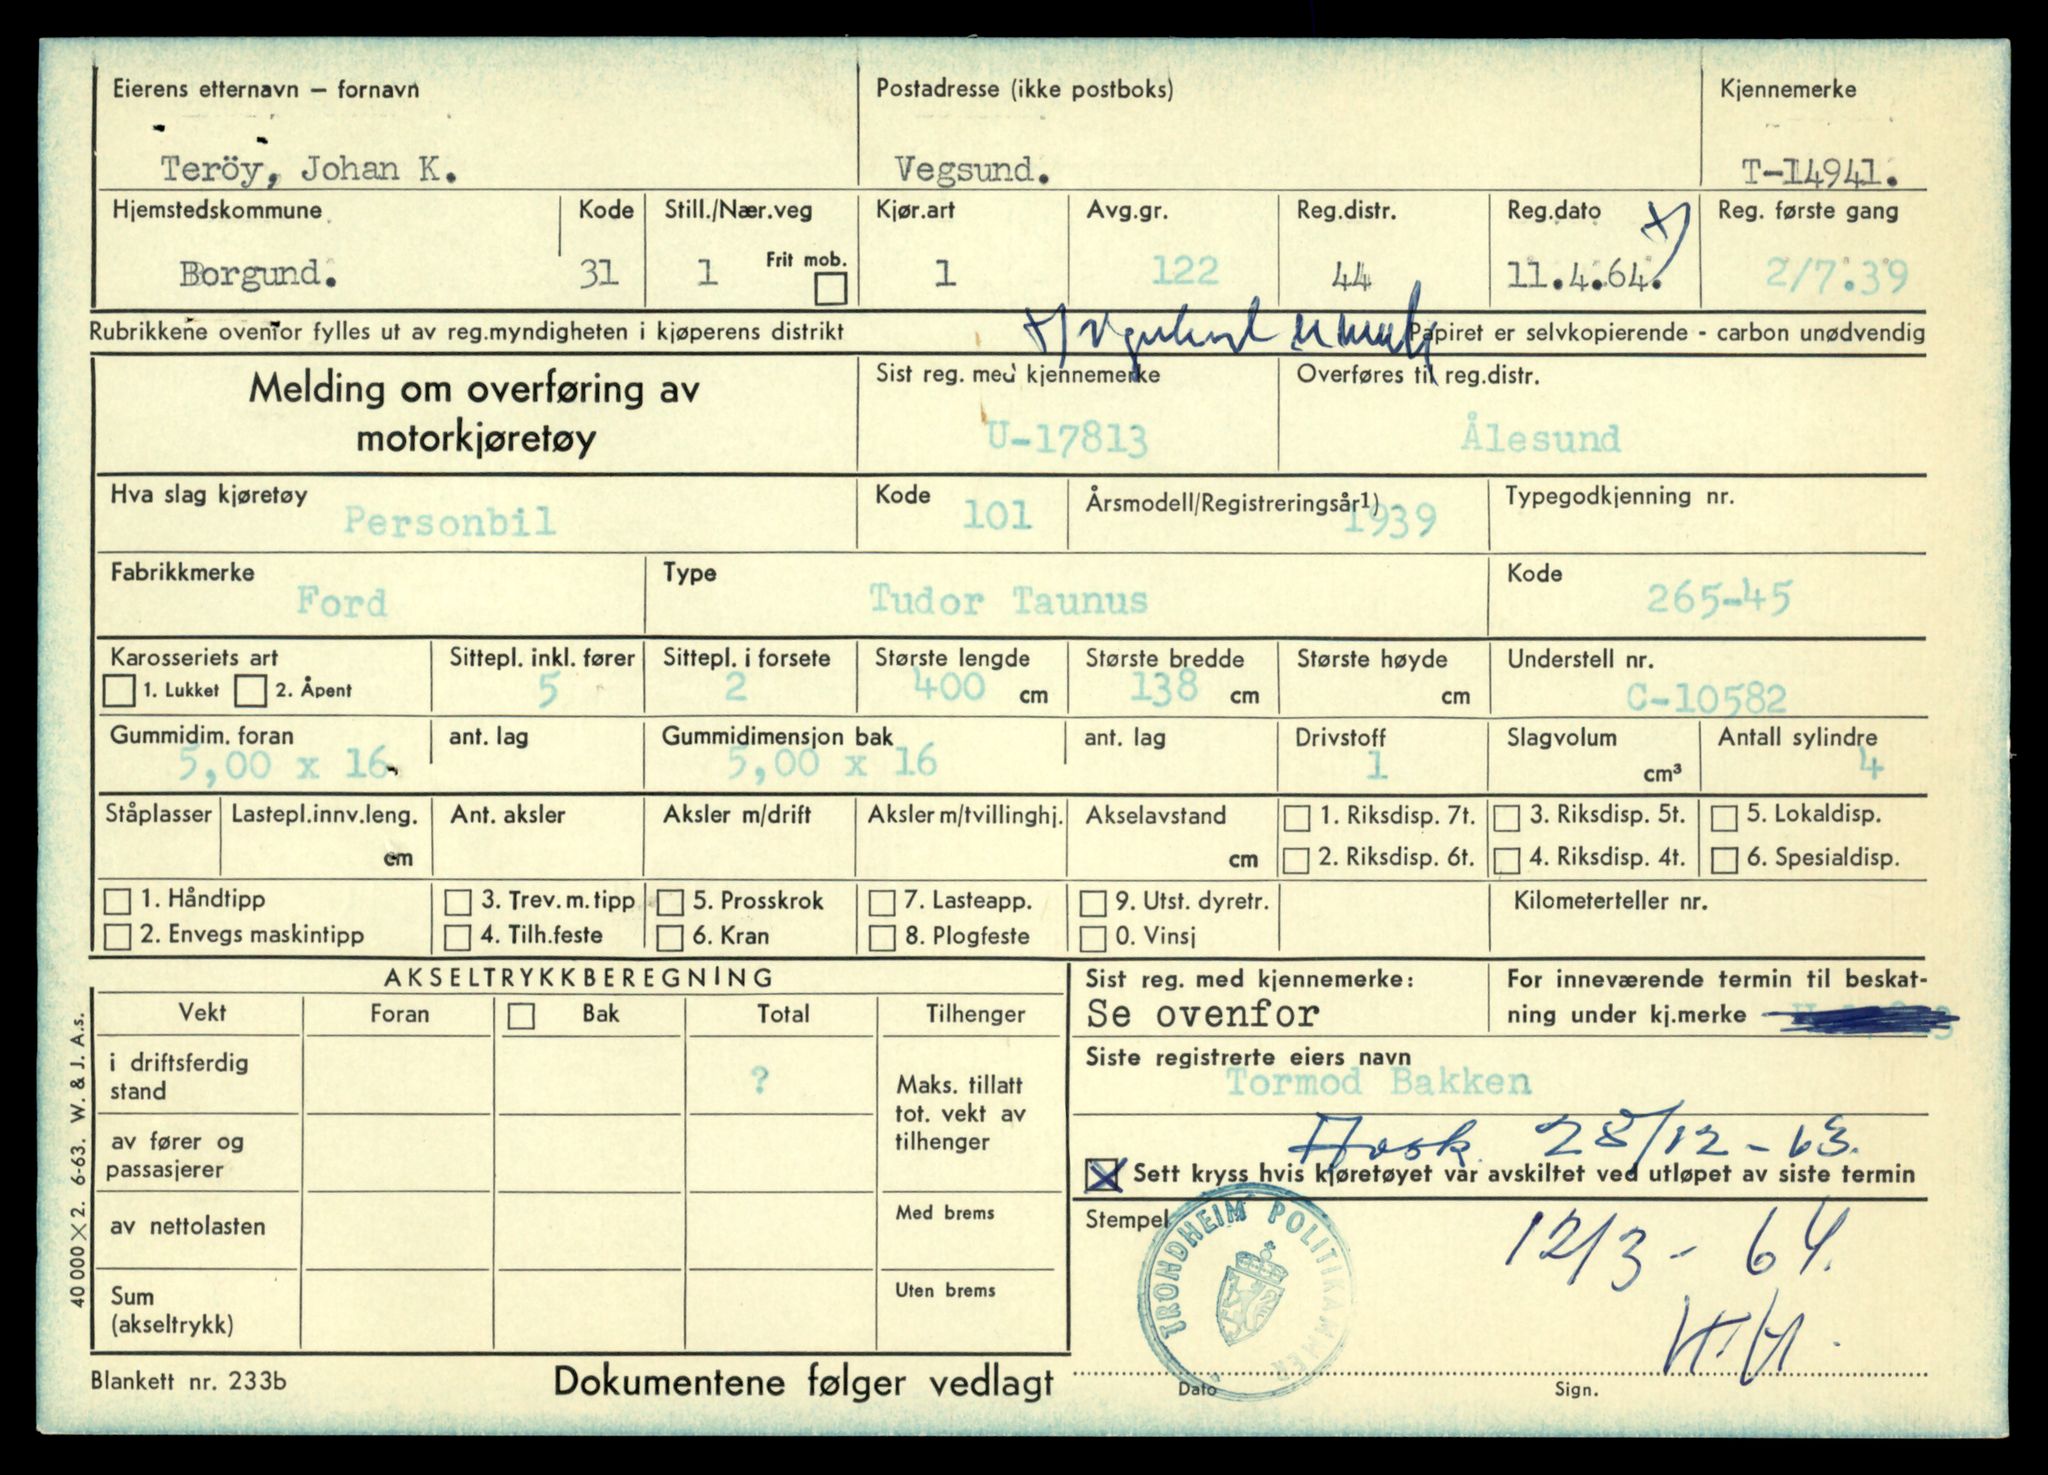 Eierens etternavn – fornavn
Postadresse (ikke postboks)
Kjennemerke
Teröy, Johan K.
Vegsund.
T-14941.
Hjemstedskommune
Kode
Still./Nær.veg
Kjør.art
Avg.gr.
Reg.distr.
Reg.dato
x)
Reg. første gang
Borgund.
31
1
Frit mob.
1
122
44
11.4.64.
2/7.39
Rubrikkene ovenfor fylles ut av reg.myndigheten i kjøperens distrikt
x)
Papiret er selvkopierende - carbon unødvendig
Melding om overføring av
motorkjøretøy
Sist reg. med kjennemerke
U-17813
Overføres til reg.distr.
Ålesund
Hva slag kjøretøy
Personbil
Kode
101
Årsmodell/Registreringsår1)
1939
Typegodkjenning nr.
Fabrikkmerke
Ford
Type
Tudor Taunus
Kode
265-45
Karosseriets art
1. Lukket 2. Åpent
Sittepl. inkl. fører
5
Sittepl. i forsete
2
Største lengde
400 cm
Største bredde
138 cm
Største høyde
cm
Understell nr.
C-10582
Gummidim. foran
5,00 x 16
ant. lag
Gummidimensjon bak
5,00 x 16
ant. lag
Drivstoff
1
Slagvolum
cm³
Antall sylindre
4
Ståplasser
Lastepl.innv.leng.
cm
Ant. aksler
Aksler m/drift
Aksler m/tvillinghj.
Akselavstand
cm
1. Riksdisp. 7t.
2. Riksdisp. 6t.
3. Riksdisp. 5t.
4. Riksdisp. 4t.
5. Lokaldisp.
6. Spesialdisp.
1. Håndtipp
2. Envegs maskintipp
3. Trev. m. tipp
4. Tilh.feste
5. Prosskrok
6. Kran
7. Lasteapp.
8. Plogfeste
9. Utst. dyretr.
0. Vinsj
Kilometerteller nr.
AKSELTRYKKBEREGNING
Vekt
Foran
Bak
Total
Tilhenger
i driftsferdig
stand
?
av fører og
passasjerer
av nettolasten
Sum
(akseltrykk)
Maks. tillatt
tot. vekt av
tilhenger
Med brems
Uten brems
Sist reg. med kjennemerke:
Se ovenfor
For inneværende termin til beskat-
ning under kj.merke
Siste registrerte eiers navn
Tormod Bakken
Avsk. 28/12-63.
Sett kryss hvis kjøretøyet var avskiltet ved utløpet av siste termin
Stempel
TRONDHEIM POLITIKAMMER
12/3-64.
H.H.
Dato
Sign.
Blankett nr. 233b
Dokumentene følger vedlagt
40 000 X 2. 6-63. W. & J. A.s.